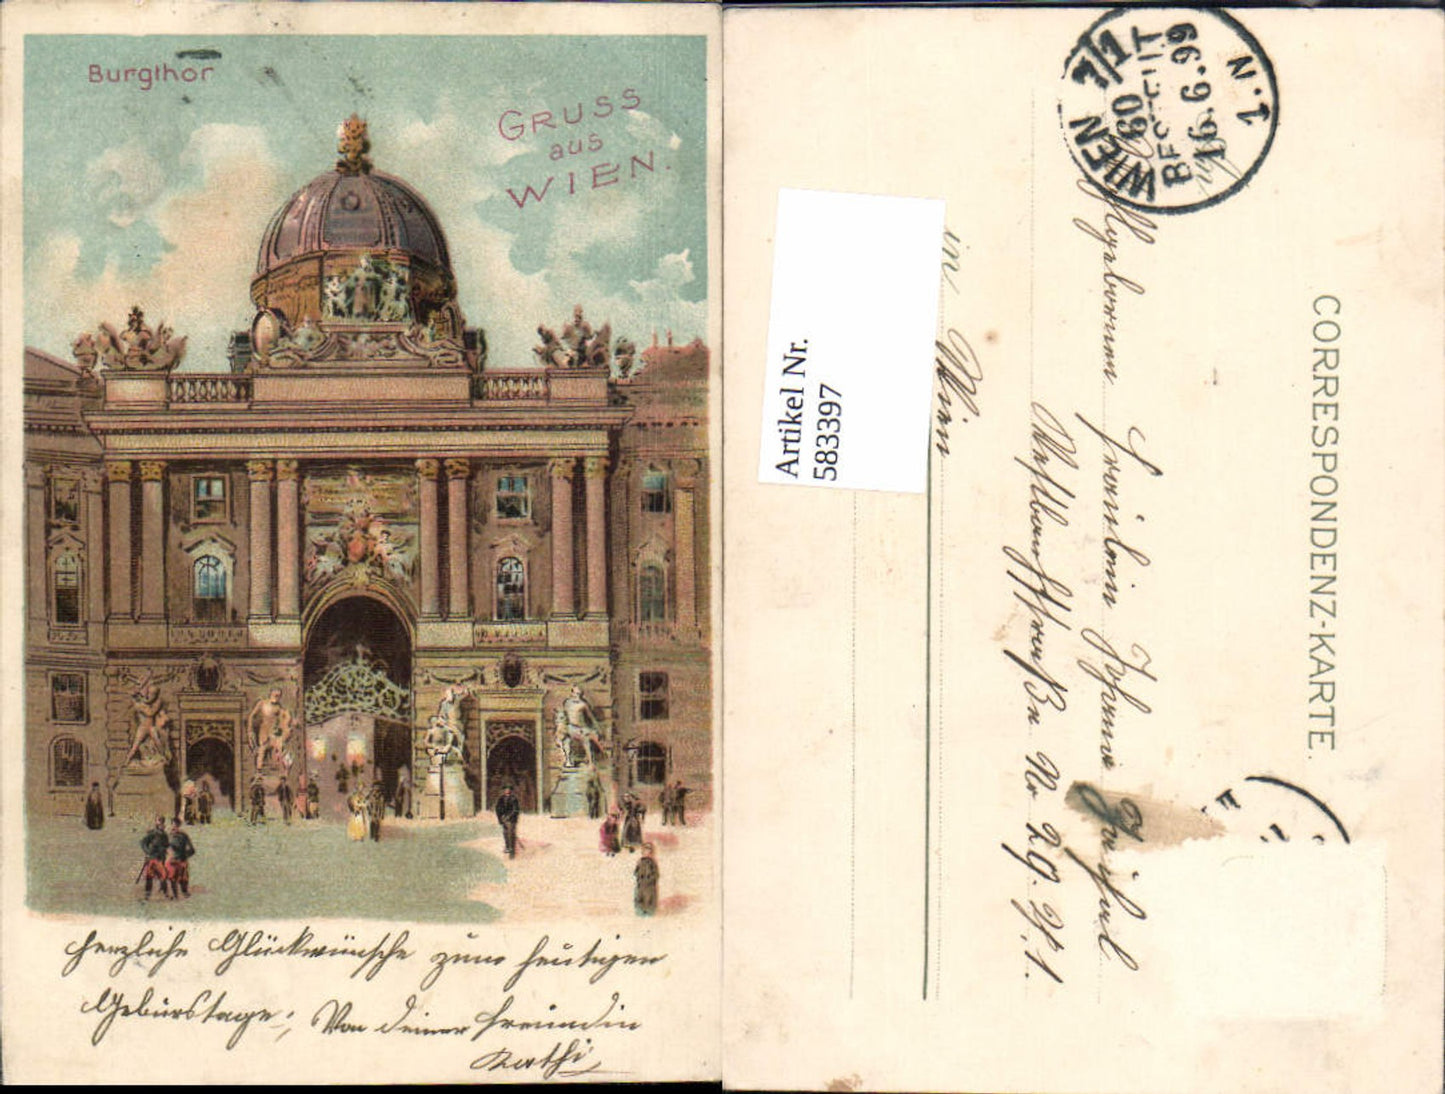 Burgthor
GRUSS
aus
WIEN.
Herzliche Glückwünsche zum heutigen
Geburstage; Von deiner Freundin
Kathi
CORRESPONDENZ-KARTE.
WIEN 7/1
60
BESTELLT
16.6.99
1.N
Wohlgebornem Fräulein Johanna
No 29. II/1.
in Wien
Artikel Nr.
583397